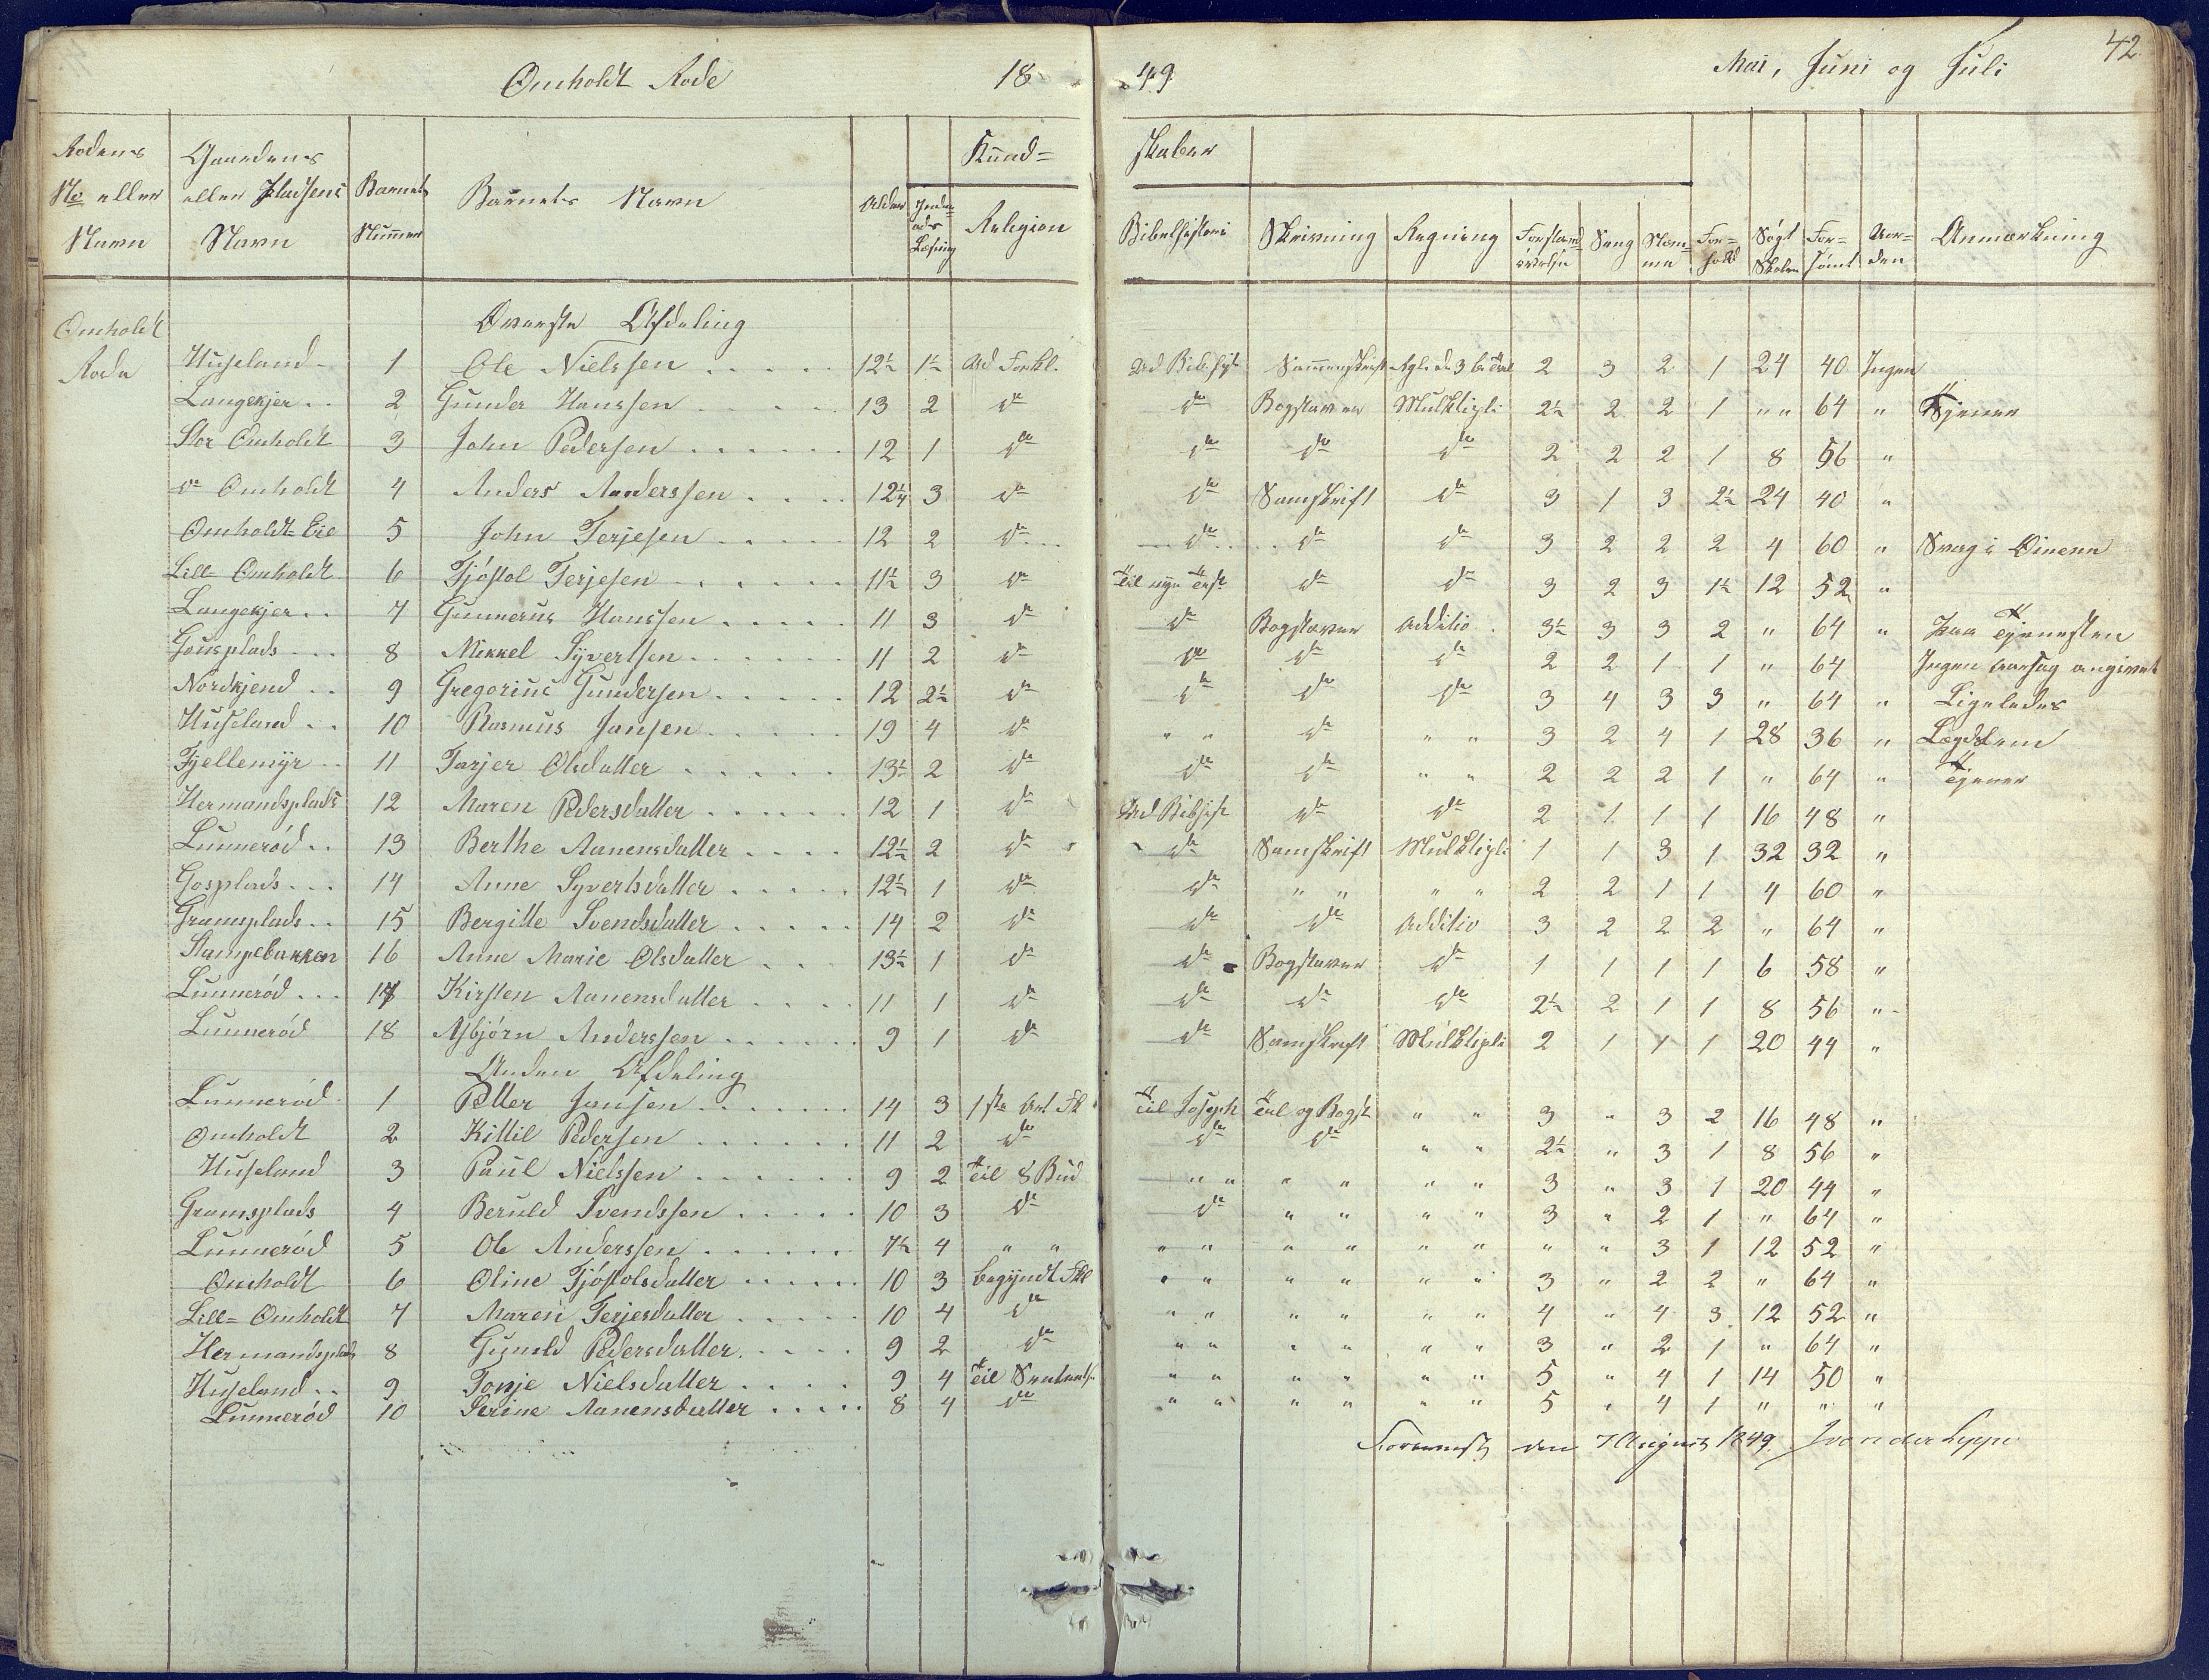 Omholdt Rode 1849 Mai, Juni og Juli 42
Kundskaber
Rodens No eller Navn | Gaardens eller Pladsens Navn | Barnets Nummer | Barnets Navn | Alder | Læsning | Religion | Bibelhistorie | Skrivning | Regning | Forstandsøvelse | Sang | Nem-me | For-hold | Søgt Skolen | For-sømt | Aar-den | Anmærkning
Øverste Afdeling
Omholdt Rode
Huseland 1 Ole Nielssen 12½ 1½ Ud Forkl. Ud Bibelhist Sammenskrift 2 3 2 1 24 40 Ingen
Langekjer 2 Gunder Hanssen 13 2 do do Bogstaver Multkligli 2½ 2 2 1 " " 64 " Tjener
Stor Omholdt 3 John Pedersen 12 1 do do do do 2 2 2 1 8 56 "
do Omholdt 4 Anders Anderssen 12¼ 3 do do Samskrift do 3 1 3 2½ 24 40 "
Omholdt Eie 5 John Terjesen 12 2 do do do do 3 2 2 2 4 60 " Svag i Øinene
Lill Omholdt 6 Tjøstol Terjesen 11½ 3 do Til nye Test do do 3 2 3 1½ 12 52 "
Langekjer 7 Gunnerus Hanssen 11 3 do do Bogstaver Additio 3½ 3 3 2 " 64 " Paa Tjenesten
Gousplads 8 Mikkel Syvertsen 11 2 do do do do 2 2 1 1 " 64 Ingen Aarsag angivet
Nordkjend 9 Gregorius Gundersen 12 2½ do do do do 3 4 3 3 " 64 " Ligeledes
Huseland 10 Rasmus Jansen 19 4 do " " do " " 3 2 4 1 28 36 " Lægdslem
Fjellemyr 11 Tarjer Olsdatter 13½ 2 do do do " " 2 2 2 1 " 64 " Tjener
Hermandsplads 12 Maren Pedersdatter 12 1 do Ud Bibhist do do 2 1 1 1 16 48 "
Lunnerød 13 Berthe Aanensdatter 12½ 2 do do Samskrift Multkligli 1 1 3 1 32 32 "
Gosplads 14 Anne Syvertsdatter 12½ 1 do do " " " " 2 2 1 1 4 60 "
Gramsplads 15 Bergitte Svendsdatter 14 2 do do do Additio 3 2 2 2 " 64 "
Stampebakken 16 Anne Marie Olsdatter 13½ 1 do do Bogstaver do 1 1 1 1 6 58 "
Lunnerød 17 Kirsten Aanensdatter 11 1 do do do do 2½ 2 1 1 8 56 "
Lunnerød 18 Asbjørn Anderssen 9 1 do do Samskrift Multkligli 2 1 1 1 20 44 "
Anden Afdeling
Lunnerød 1 Petter Jansen 14 3 1ste Art Fk Til Joseph Tal og Bogst " " 3 " 3 2 16 48 "
Omholdt 2 Kittil Pedersen 11 2 do do do " " 2½ " 3 1 8 56 "
Huseland 3 Paul Nielssen 9 2 Til 8 Bud " " " " " " 3 " 3 1 20 44 "
Gramsplads 4 Beruld Svendssen 10 3 do do " " " " 3 " 2 1 " 64 "
Lunnerød 5 Ole Anderssen 7½ 4 " " " " " " " " " " 3 1 12 52 "
Omholdt 6 Oline Tjøstolsdatter 10 3 begyndt Fkl " " " " " " 3 " 2 2 " 64 "
Lill= Omholdt 7 Maren Terjesdatter 10 4 do " " " " " " 4 " 4 3 12 52 "
Hermandsplads 8 Gunild Pedersdatter 9 2 do " " " " " " 3 " 2 1 " 64 "
Huseland 9 Tonje Nielsdatter 9 4 Til " " " " " " 5 " 4 1 14 50 "
Lunnerød 10 Serine Aanensdatter 8 4 do " " " " " " 5 " 4 1 " " "
den 7 August 1849